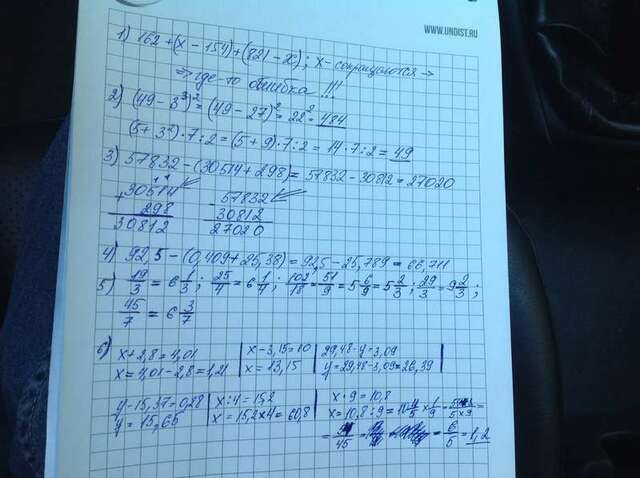 WWW.UNDIST.RU
1) 162 + (x - 154) + (821 - x); x - сокращаются →
⇒ где то ошибка !!!
2) (49 - 3³)² = (49 - 27)² = 22² = 484
(5 + 3²) · 7 : 2 = (5 + 9) · 7 : 2 = 14 · 7 : 2 = 49
3) 57832 - (30514 + 298) = 57832 - 30812 = 27020
+ 30514 - 57832
298 30812
30812 27020
4) 92,5 - (0,409 + 25,38) = 92,5 - 25,789 = 66,711
5) 19/3 = 6 1/3; 25/4 = 6 1/4; 102/18 = 51/9 = 5 6/9 = 5 2/3; 29/3 = 9 2/3;
45/7 = 6 3/7
6) x + 2,8 = 4,01 | x - 3,15 = 10 | 29,48 - y = 3,09
x = 4,01 - 2,8 = 1,21 | x = 13,15 | y = 29,48 - 3,09 = 26,39
y - 15,37 = 0,28 | x : 4 = 15,2 | x · 9 = 10,8
y = 15,65 | x = 15,2 × 4 = 60,8 | x = 10,8 : 9 = 10 4/5 × 1/9 =
= 6/5 = 1,2